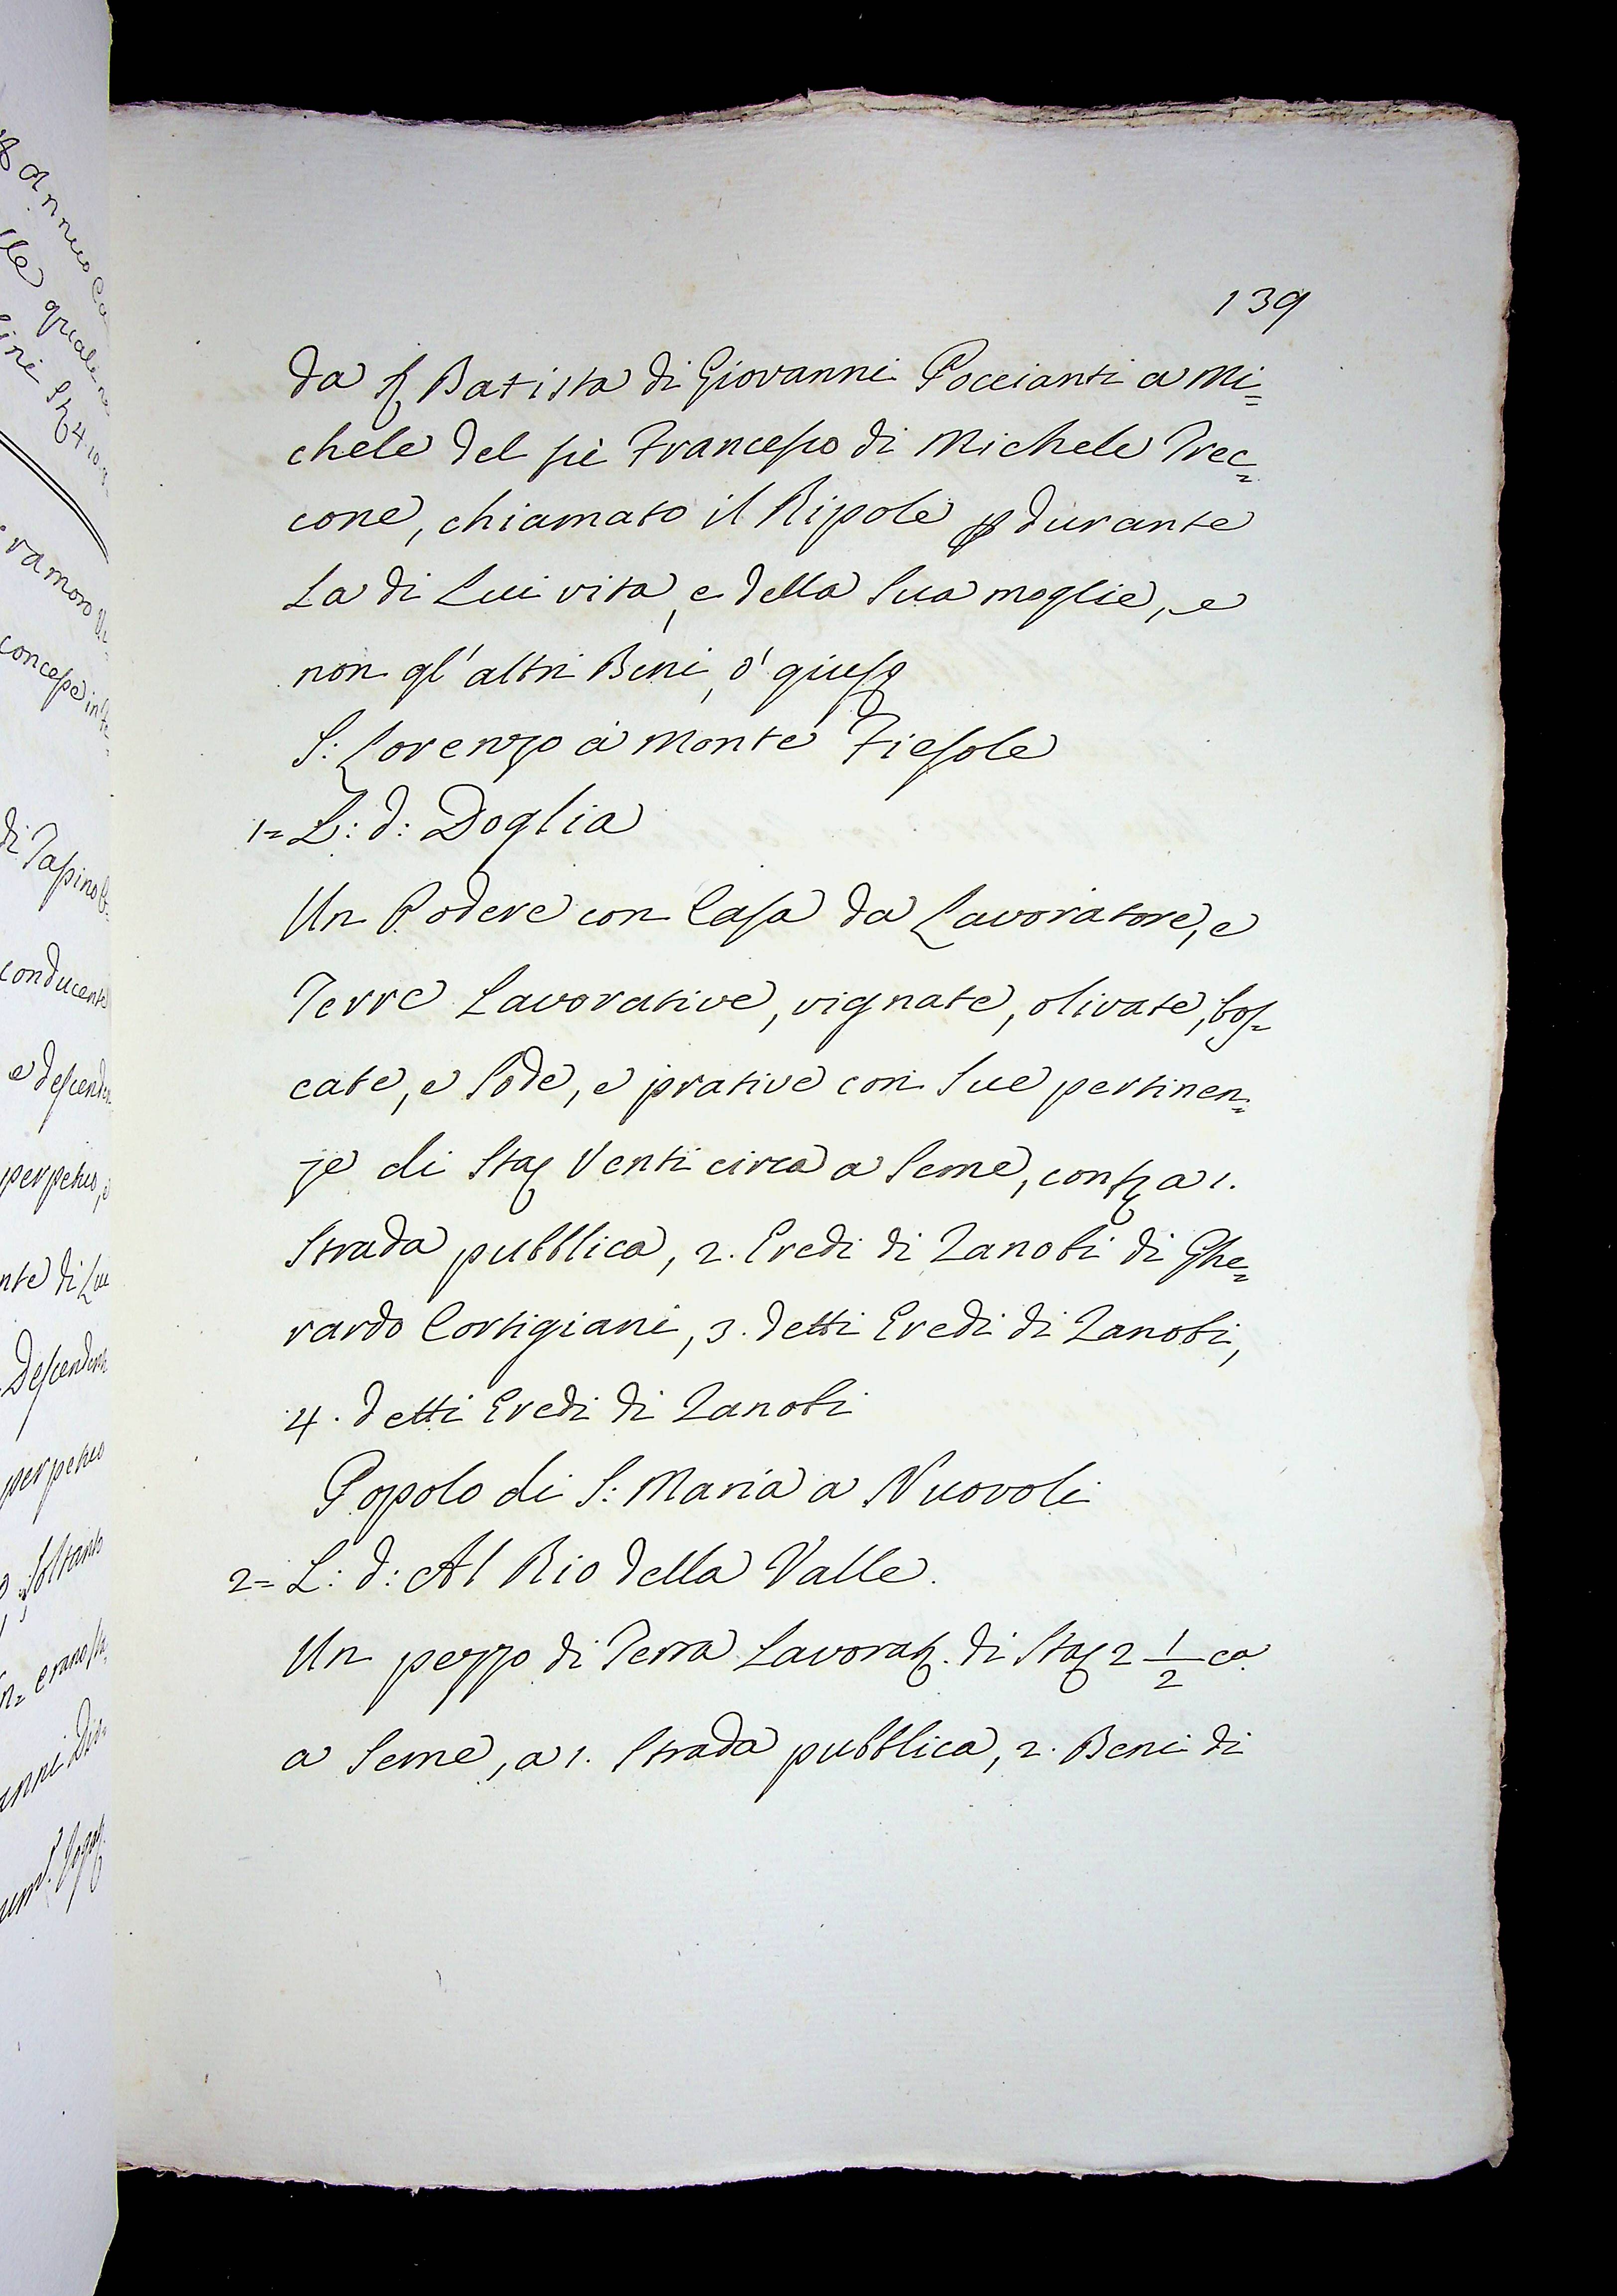 139
da Batista di Giovanni Poccianti a Mi=
chele del fù Francesco di Michele Trec=
cone, chiamato il Ripole p durante
La di Lui vita, e della Sua moglie, e
non gl' altri Beni, ò giusp
S: Lorenzo à Monte Fiesole
1= L: d: Doglia
Un Podere con Casa da Lavoratore, e
Terre Lavorative, vignate, olivate, bos=
cate, e Sode, e prative con Sue pertinen=
ze di Sta Venti circa a Seme, conf a 1.
Strada pubblica, 2. Eredi di Zanobi di Ghe=
rardo Cortigiani, 3. detti Eredi di Zanobi,
4. detti Eredi di Zanobi
Popolo di S: Maria a Nuovoli
2= L: d: Al Rio della Valle.
Un pezzo di Terra Lavorat. di Sta 2 1/2 ca
a Seme, a 1. Strada pubblica, 2. Beni di